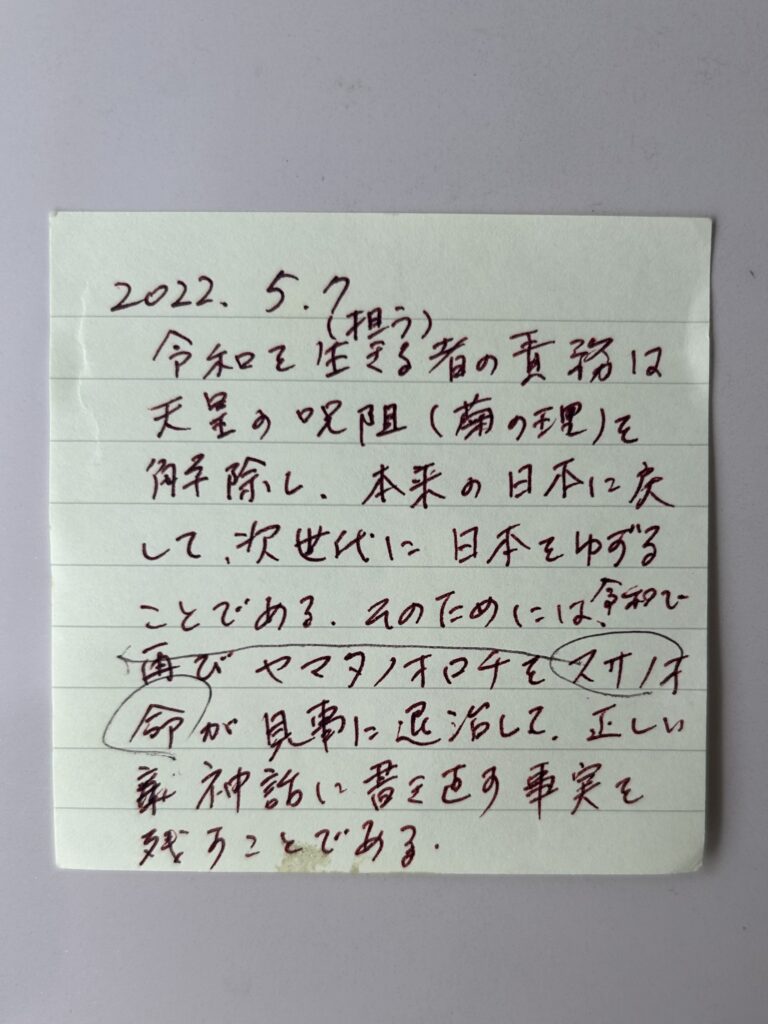 2022. 5.7
(担う)
令和を生きる者の責務は
天皇の呪阻(菊の理)を
解除し、本来の日本に戻
して、次世代に日本をゆずる
ことである。そのためには、令和で
再びヤマタノオロチをスサノオ
命が見事に退治して、正しい
神話に書き直す事実を
残すことである。